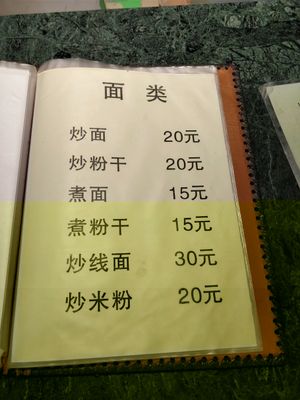 面 类
炒面 20元
炒粉干 20元
煮面 15元
煮粉干 15元
炒线面 30元
炒米粉 20元